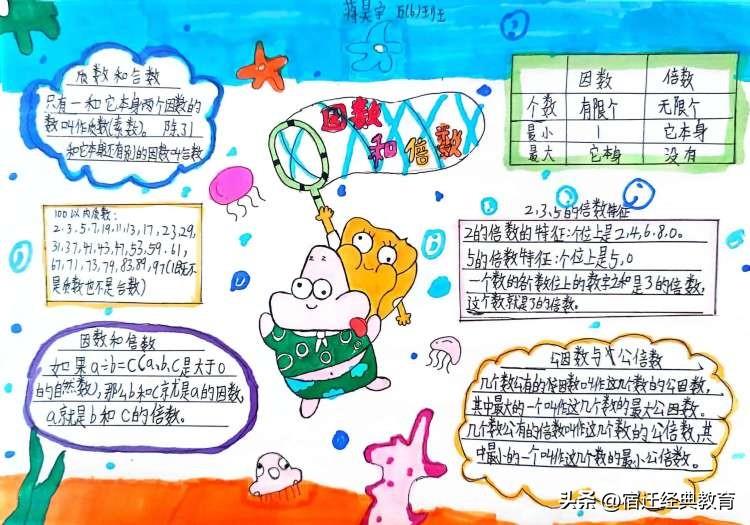 蒋昊宇 五(6)班
质数和合数
只有一和它本身两个因数的
数叫作质数(素数)。 除了1
和它本身还有别的因数叫合数
因数
和倍数
因数 倍数
个数 有限个 无限个
最小 1 它本身
最大 它本身 没有
100以内质数:
2.3.5.7,19,11,13,17,23,29,
31,37,41,43,47,53,59.61,
67,71,73,79,83,89,97(1既不
是质数也不是合数)
2、3、5的倍数特征
2的倍数的特征:个位上是2,4,6.8.0。
5的倍数特征:个位上是5,0
一个数的各个数位上的数字之和是3的倍数,
这个数就是3的倍数。
因数和倍数
如果a÷b=C(a、b、C是大于0
的自然数),那么b和C就是a的因数,
a就是b和C的倍数。
公因数与公倍数
几个数公有的因数叫作这几个数的公因数,
其中最大的一个叫作这几个数的最大公因数。
几个数公有的倍数叫作这几个数的公倍数,其
中最小的一个叫作这几个数的最小公倍数。
头条@宿迁经典教育